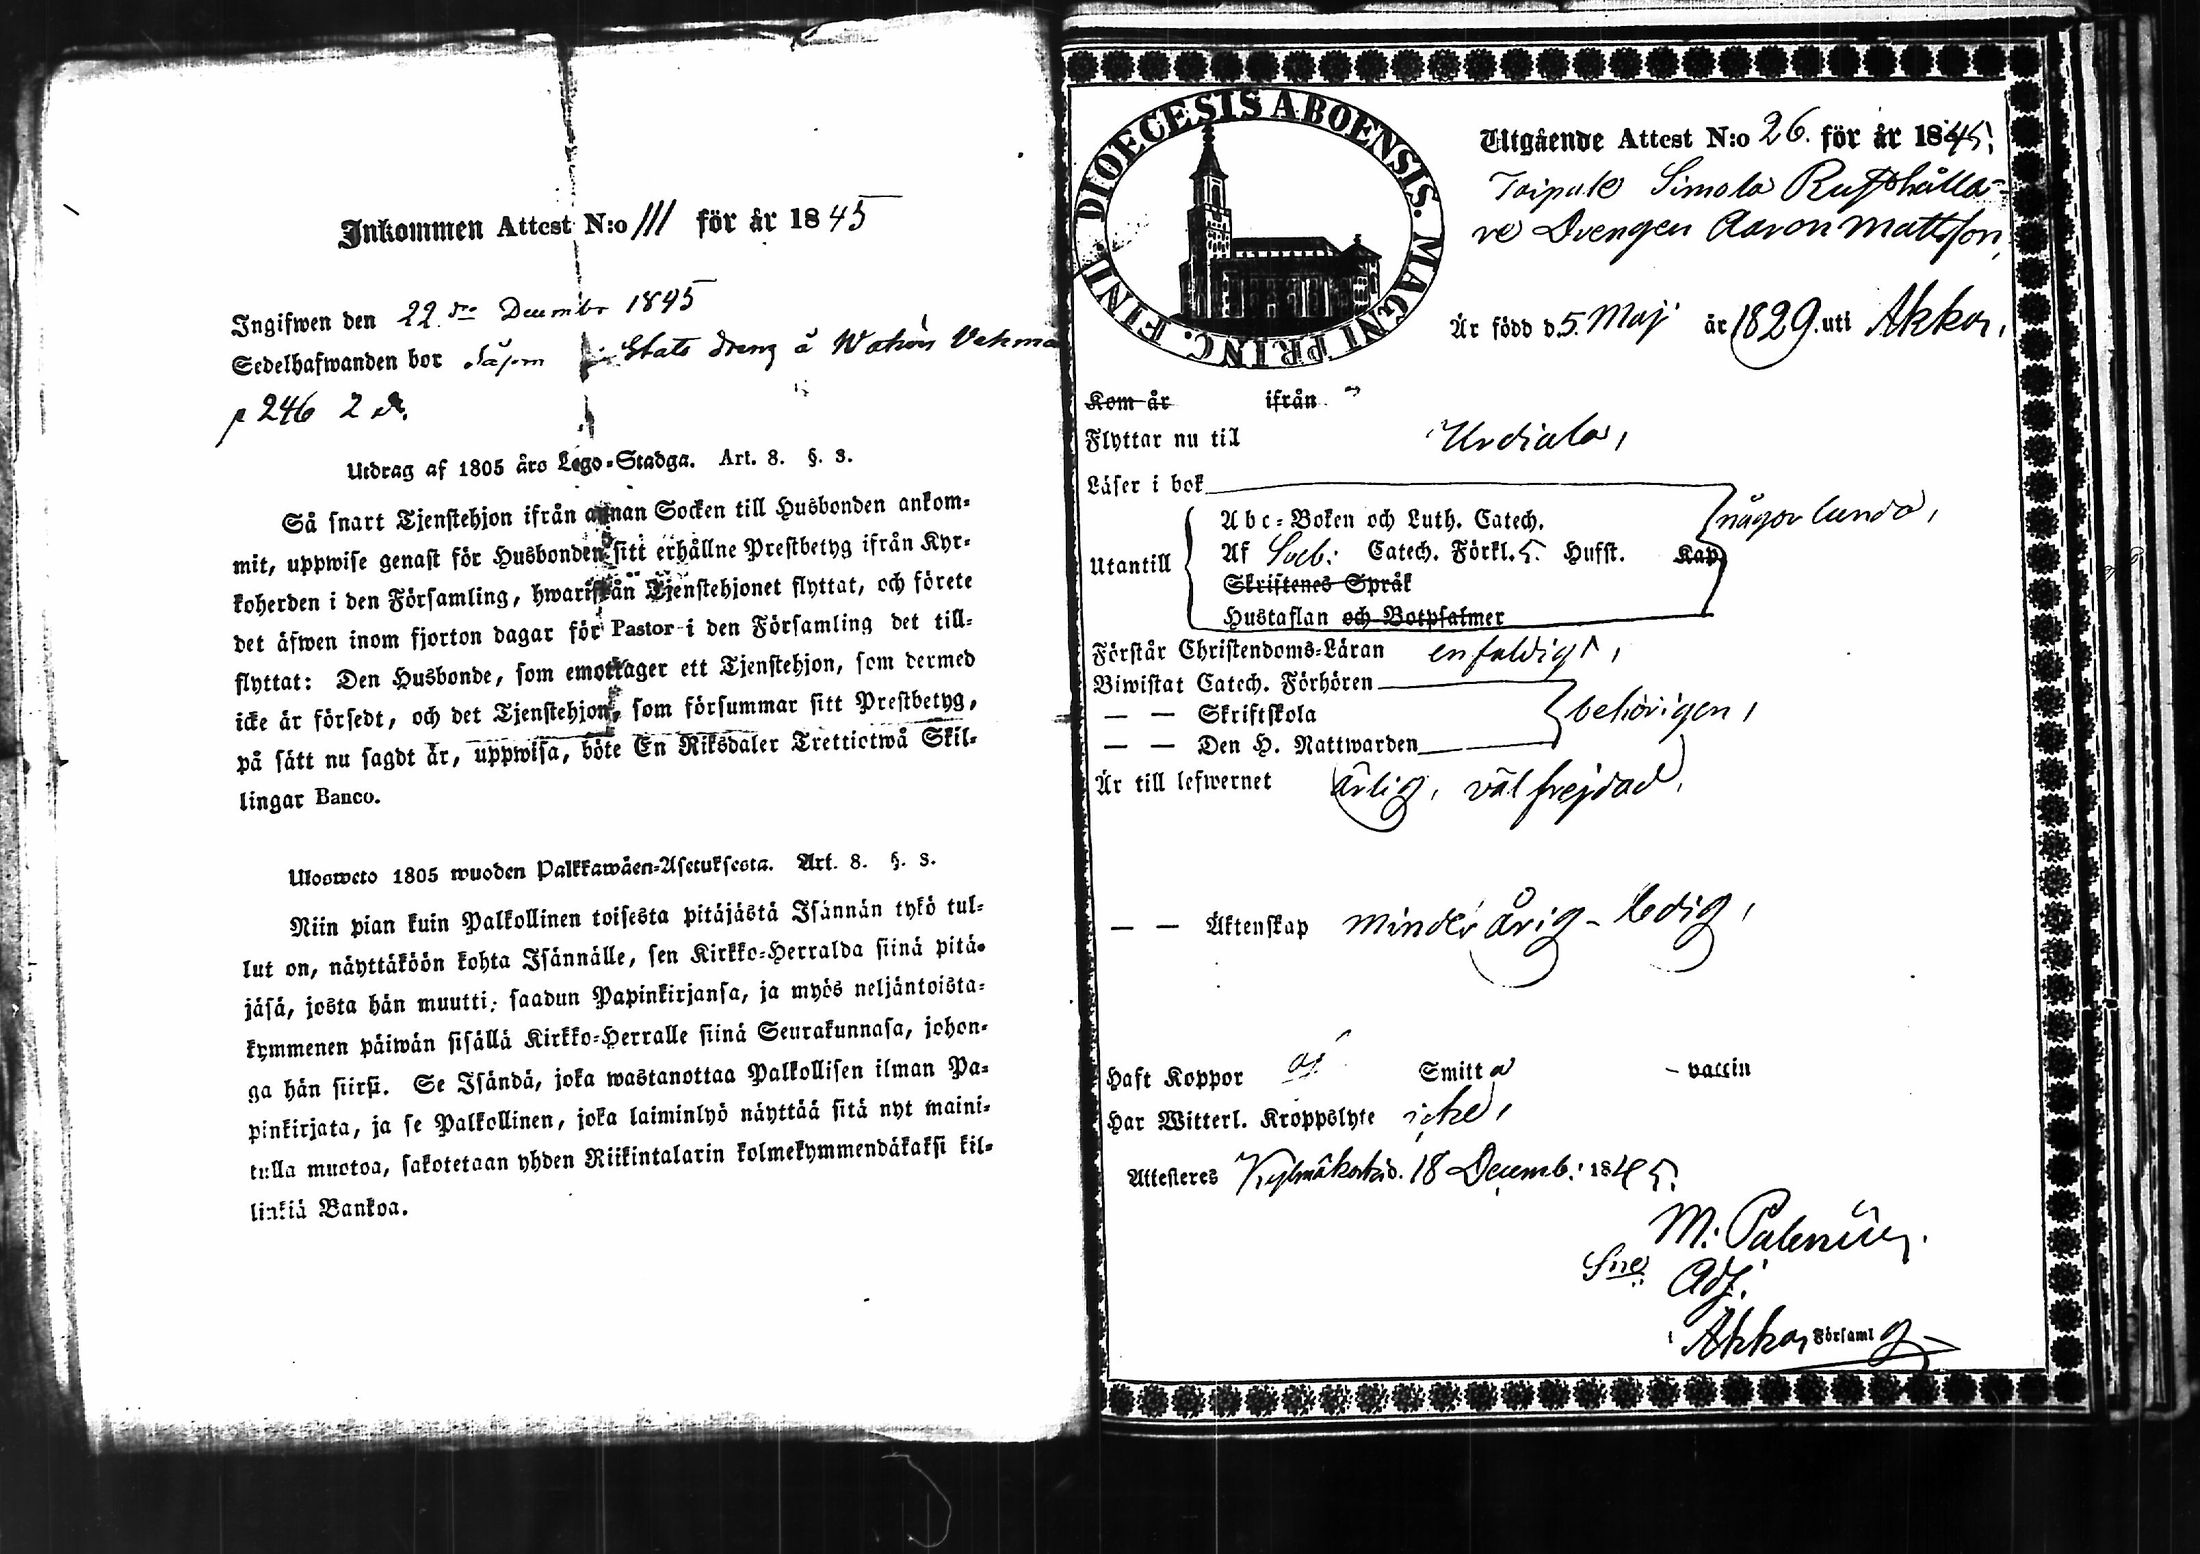 Inkommen Attest N:o 111 för år 1845
Ingifwen den 22 dre Decembr 1845
Sedelhafwanden bor såsom Stats dreng å Wahén Vehma
p 246 2 d.
Utdrag af 1805 års Lego-Stadga. Art. 8. §. 8.
Så snart Tjenstehjon ifrån annan Socken till Husbonden ankom-
mit, uppwise genast för Husbonden sitt erhållne Prestbetyg ifrån Kyr-
koherden i den Församling, hwarifrån Tjenstehjonet flyttat, och förete
det äfwen inom fjorton dagar för Pastor i den Församling det till-
flyttat: Den Husbonde, som emottager ett Tjenstehjon, som dermed
icke är försedt, och det Tjenstehjon, som försummar sitt Prestbetyg,
på sätt nu sagdt är, uppwisa, böte En Riksdaler Trettiotwå Skil-
lingar Banco.
Ulosweto 1805 wuoden Palkkawäen-Asetuksesta. Art. 8. §. 8.
Niin pian kuin Palkollinen toisesta pitäjästä Isännän tykö tul-
lut on, näyttäköön kohta Isännälle, sen Kirkko-Herralda siinä pitä-
jäsä, josta hän muutti, saadun Papinkirjansa, ja myös neljäntoista-
kymmenen päiwän sisällä Kirkko-Herralle siinä Seurakunnasa, johon-
ga hän siirsi. Se Isändä, joka wastanottaa Palkollisen ilman Pa-
pinkirjata, ja se Palkollinen, joka laiminlyö näyttää sitä nyt maini-
tulla muotoa, sakotetaan yhden Riikintalarin kolmekymmendäkaksi kil-
linkiä Bankoa.
DIOECESIS ABOENSIS. MAGNI PRINC. FINL.
Utgående Attest N:o 26. för år 1845.
Taipale Simola Rusthålla-
re Drengen Aaron Mattsson,
Är född d. 5. Maj år 1829. uti Akkas,
Kom år ifrån
Flyttar nu till Urdiala,
Läser i bok
Utantill
Abc-Boken och Luth. Catech. någorlunda,
Af Sveb: Catech. Förkl. 5. Hufst. Kap
Skriftenes Språk
Hustaflan och Botpsalmer
Förstår Christendoms-Läran enfaldigt,
Biwistat Catech. Förhören
— — Skriftskola behörigen,
— — Den H. Nattwarden
Är till lefwernet ärlig, välfrejdad,
— — Äktenskap minderårig - ledig,
Haft Koppor Smitta - vaccin
Har Witterl. Kroppslyte icke,
Attesteres Kylmäkoskid. 18 Decemb. 1845.
M: Palenius.
Sne Adj.
i Akkas Församlg